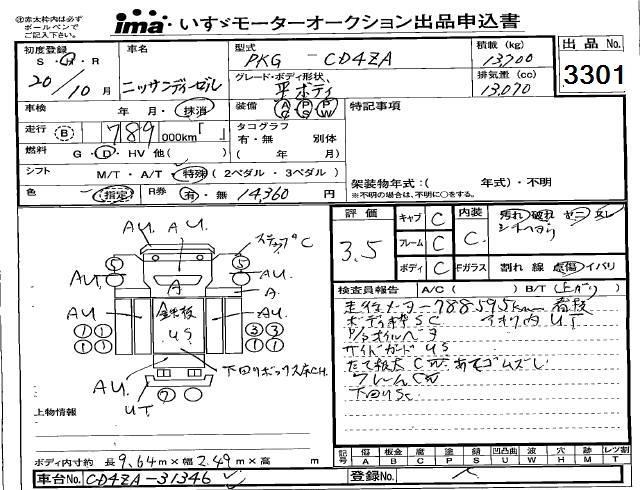 ㊟赤太枠内は必ず
ボールペンで
ご記入下さい。
ima いすゞモーターオークション出品申込書
初度登録 S・H・R 20/10月
車名 ニッサンディーゼル
型式 PKG - CD4ZA
積載 (kg) 13,700
出品 No. 3301
グレード・ボディ形状 平ボディ
排気量 (cc) 13,070
車検 年 月・抹消
装備 AC PS PW
特記事項
走行 B 789 000km「 」
タコグラフ 有・無 別体
( 年 月)
燃料 G・D・HV 他( )
シフト M/T・A/T・特殊 (2ペダル・3ペダル)
架装物年式:( 年式)・不明
※架装物年式は、不明時に○をする。
色 (指定) R券 有・無 14,360 円
評価 3.5
キャブ C
フレーム C
ボディ C
内装 C
汚れ 破れ
Fガラス 割れ 線 点傷 イバリ
検査員報告 A/C ( ) B/T (上がり)
走行メーター788595km 看板
ボディ枠SC アオリ内UT
P/Sオイルベタ
サイドガードUS
フレームCW
下回りSC
ステップC
AU AU
5 5
AU AU
A A
鉄板
US
AU AU
1 1 3 3
1 1 3 3
下回りボックス床CH
AU
UT 7
上物情報
ボディ内寸約 長 9.64 m×幅 2.49 m×高 m
記号 傷 板金 腐 塗 錆 凹 凹曲 波 穴 跡 レツ割
A B C P S U W H M T
車台No. CD4ZA-31346
登録No.